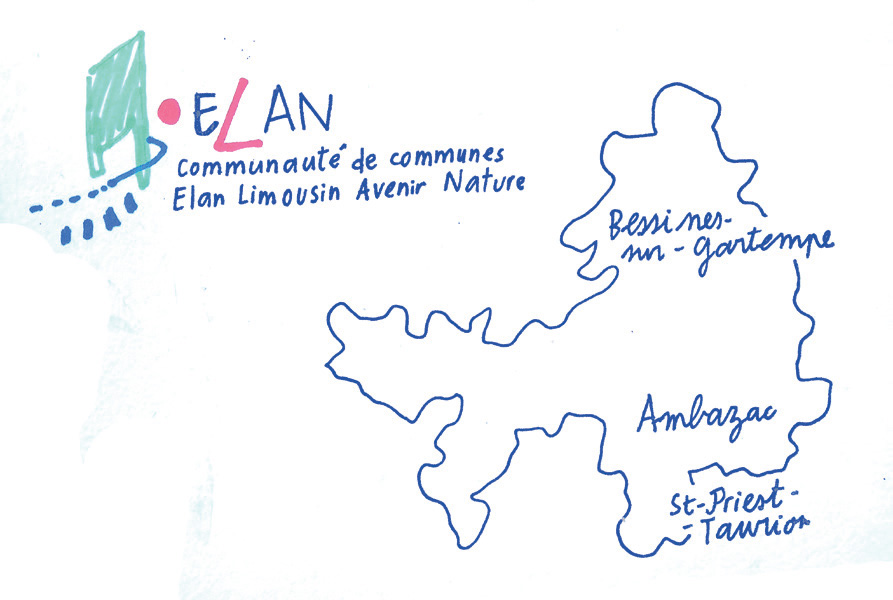 ELAN
Communauté de communes
Elan Limousin Avenir Nature
Bessines-
sur-Gartempe
Ambazac
St-Priest-
-Taurion